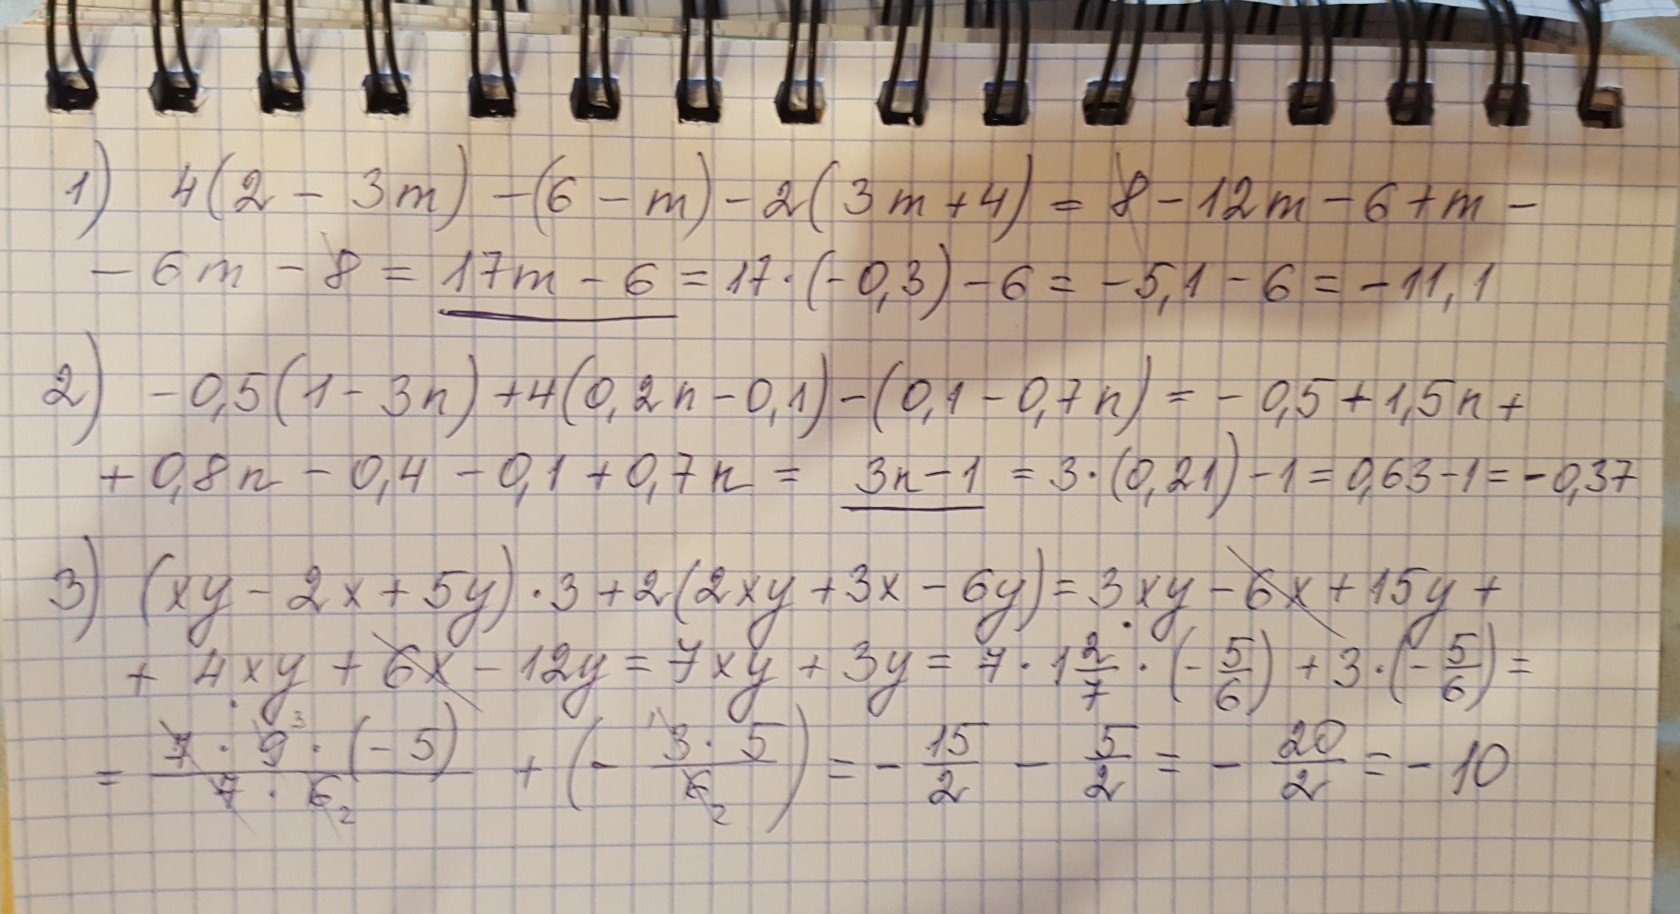 1) 4(2 - 3m) - (6 - m) - 2(3m + 4) = 8 - 12m - 6 + m -
- 6m - 8 = 17m - 6 = 17·(-0,3) - 6 = -5,1 - 6 = -11,1
2) -0,5(1 - 3n) + 4(0,2n - 0,1) - (0,1 - 0,7n) = -0,5 + 1,5n +
+ 0,8n - 0,4 - 0,1 + 0,7n = 3n - 1 = 3·(0,21) - 1 = 0,63 - 1 = -0,37
3) (xy - 2x + 5y)·3 + 2(2xy + 3x - 6y) = 3xy - 6x + 15y +
+ 4xy + 6x - 12y = 7xy + 3y = 7·1 2/7·(-5/6) + 3·(-5/6) =
= 7·9³·(-5)/7·6₂ + (-¹3·5/6₂) = -15/2 - 5/2 = -20/2 = -10